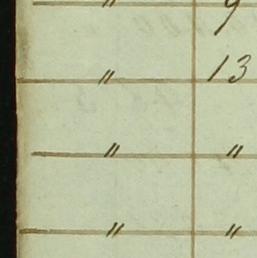 " 9
" 13
" "
" "